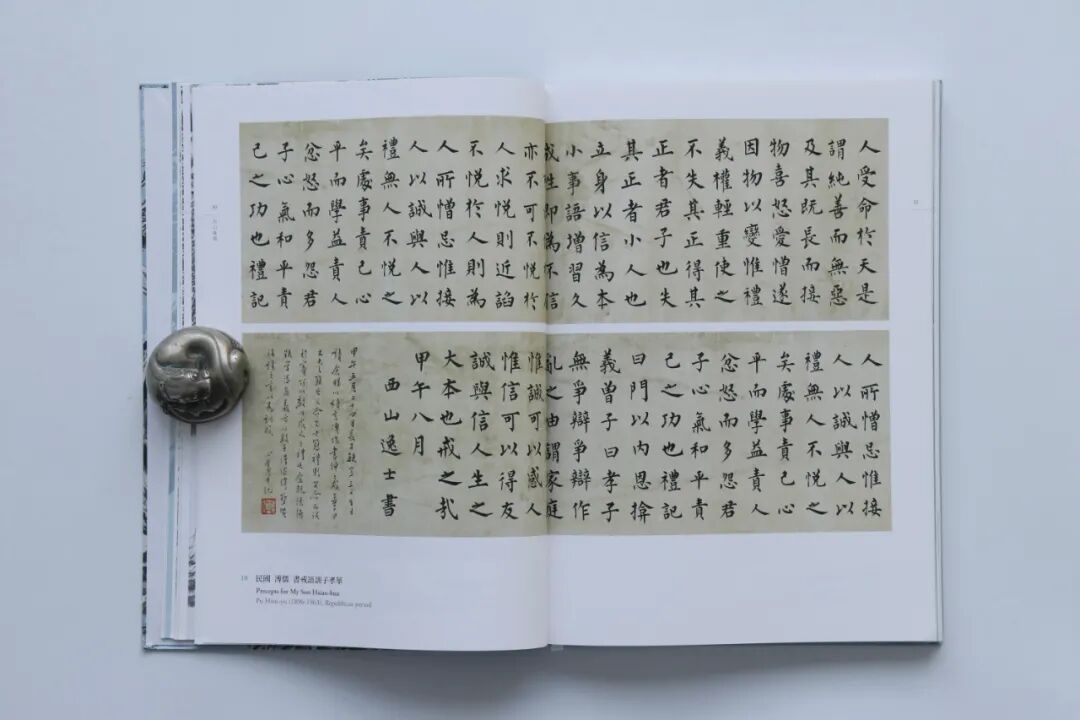 人受命於天是
謂純善而無惡
及其既長而接
物喜怒愛憎遂
因物以變惟禮
義權輕重使之
不失其正得其
正者君子也失
其正者小人也
立身以信為本
小事語增習久
成性即為不信
亦不可不悅於
人求悅則近諂
不悅於人則為
人所憎忌惟接
人以誠與人以
禮無人不悅之
矣處事責己心
平而學益責人
忿怒而多怨君
子心氣和平責
己之功也禮記
人所憎忌惟接
人以誠與人以
禮無人不悅之
矣處事責己心
平而學益責人
忿怒而多怨君
子心氣和平責
己之功也禮記
曰門以內恩揜
義曾子曰孝子
無爭辯爭辯作
亂之由謂家庭
惟誠可以感人
惟信可以得友
誠與信人生之
大本也戒之哉
甲午八月
西山逸士書
民國 溥儒 書戒語訓子孝華
Precepts for My Son Hsiao-hua
Pu Hsin-yu (1896-1963), Republican period